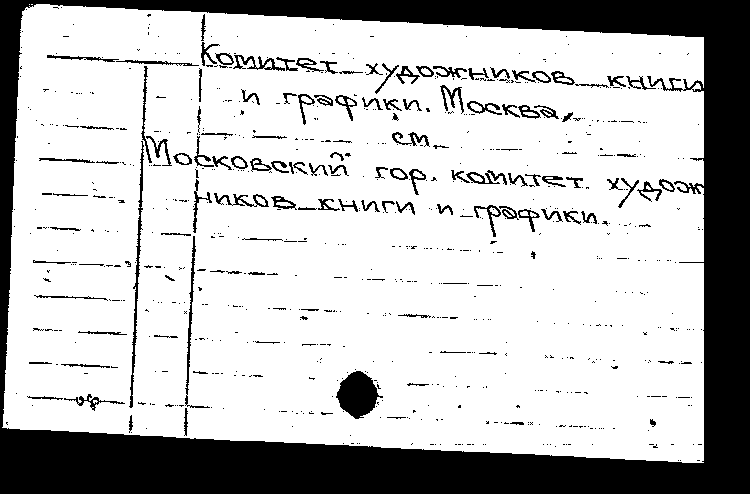 Комитет художников книги
и графики. Москва,
см.
Московский гор. комитет худож
ников книги и графики.